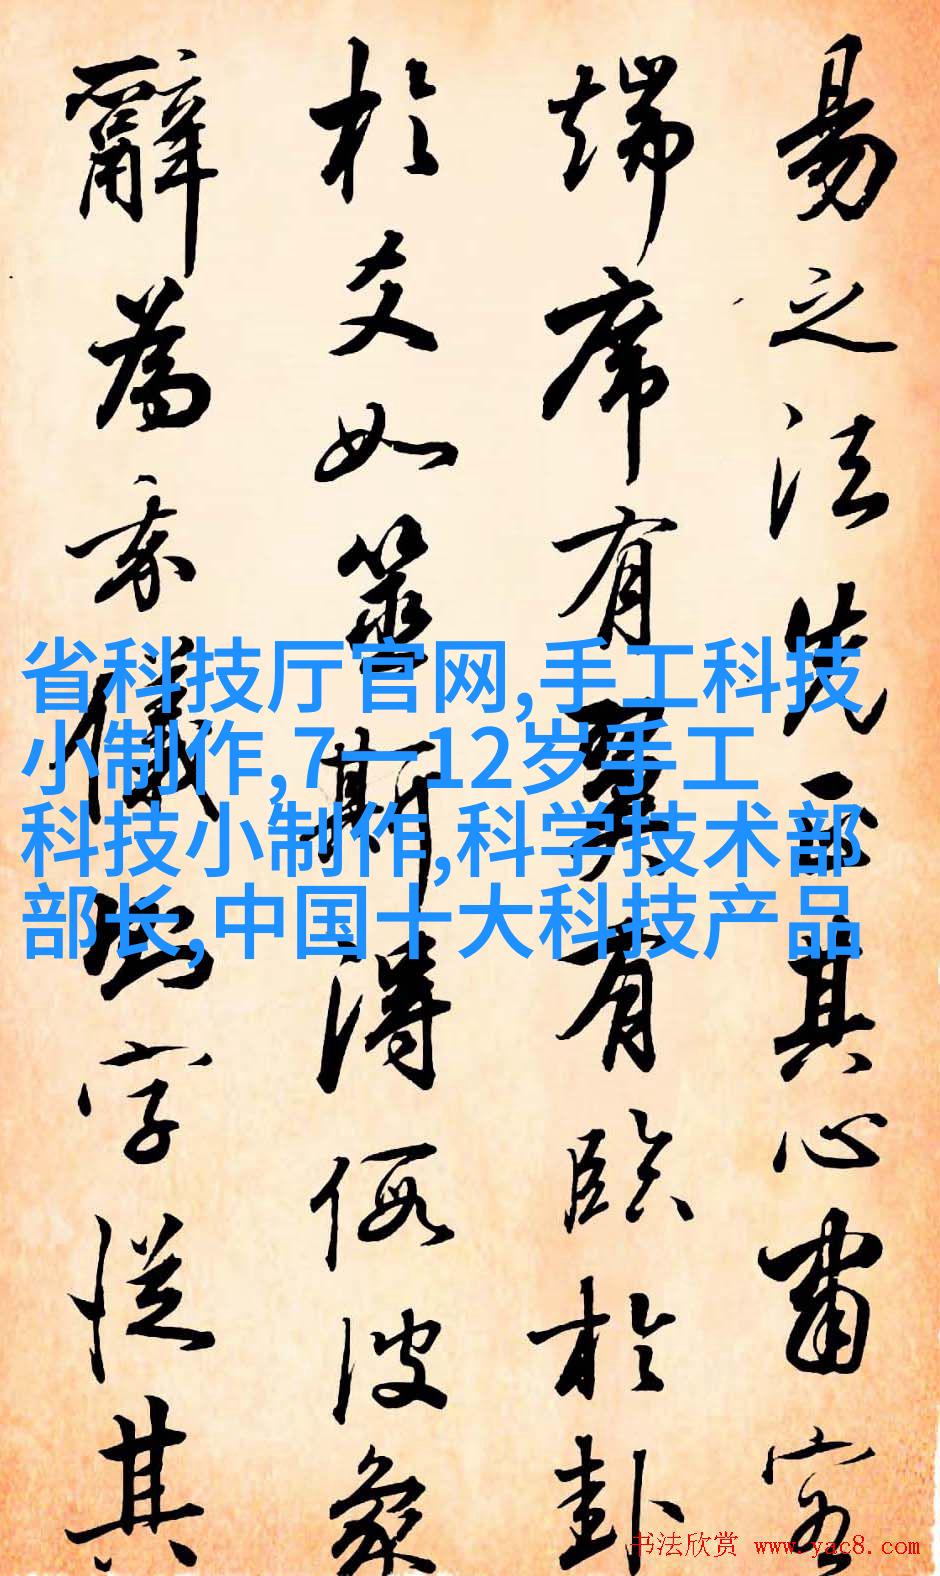 易之法先正其心肅容
端席有翼有臨於卦
於爻如筮斯得假彼象
辭為我儀字從其
省科技厅官网,手工科技
小制作,7一12岁手工
科技小制作,科学技术部
部长,中国十大科技产品
书法欣赏 www.yac8.com